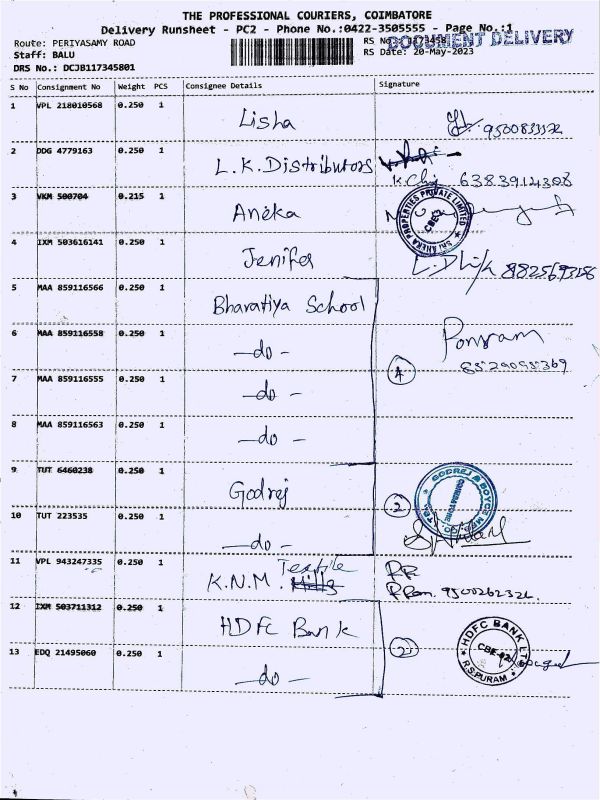 THE PROFESSIONAL COURIERS, COIMBATORE
Delivery Runsheet - PC2 - Phone No.:0422-3505555 - Page No.:1
Route: PERIYASAMY ROAD RS No
DOCUMENT DELIVERY
Staff: BALU RS Date: 20-May-2023
DRS No.: DCJB117345801
S No Consignment No Weight PCS Consignee Details Signature
1 VPL 218010568 0.250 1 Lisha
2 DDG 4779163 0.250 1 L.K.Distributors
6383914308
3 VKM 500704 0.215 1 Aneka
SRI ANEKA PROPERTIES PRIVATE LIMITED CBE
4 IXM 503616141 0.250 1 Jenifer
5 MAA 859116566 0.250 1 Bharatiya School
6 MAA 859116558 0.250 1 -do- Ponram
4
7 MAA 859116555 0.250 1 -do-
8 MAA 859116563 0.250 1 -do-
9 TUT 6460238 0.250 1 Godrej 2
GODREJ & BOYCE
10 TUT 223535 0.250 1 -do-
11 VPL 943247335 0.250 1 K.N.M. Textile RR
9500262326
12 IXM 503711312 0.250 1 HDFC Bank
2
HDFC BANK LTD CBE-02 R.S.PURAM
13 EDQ 21495060 0.250 1 -do-